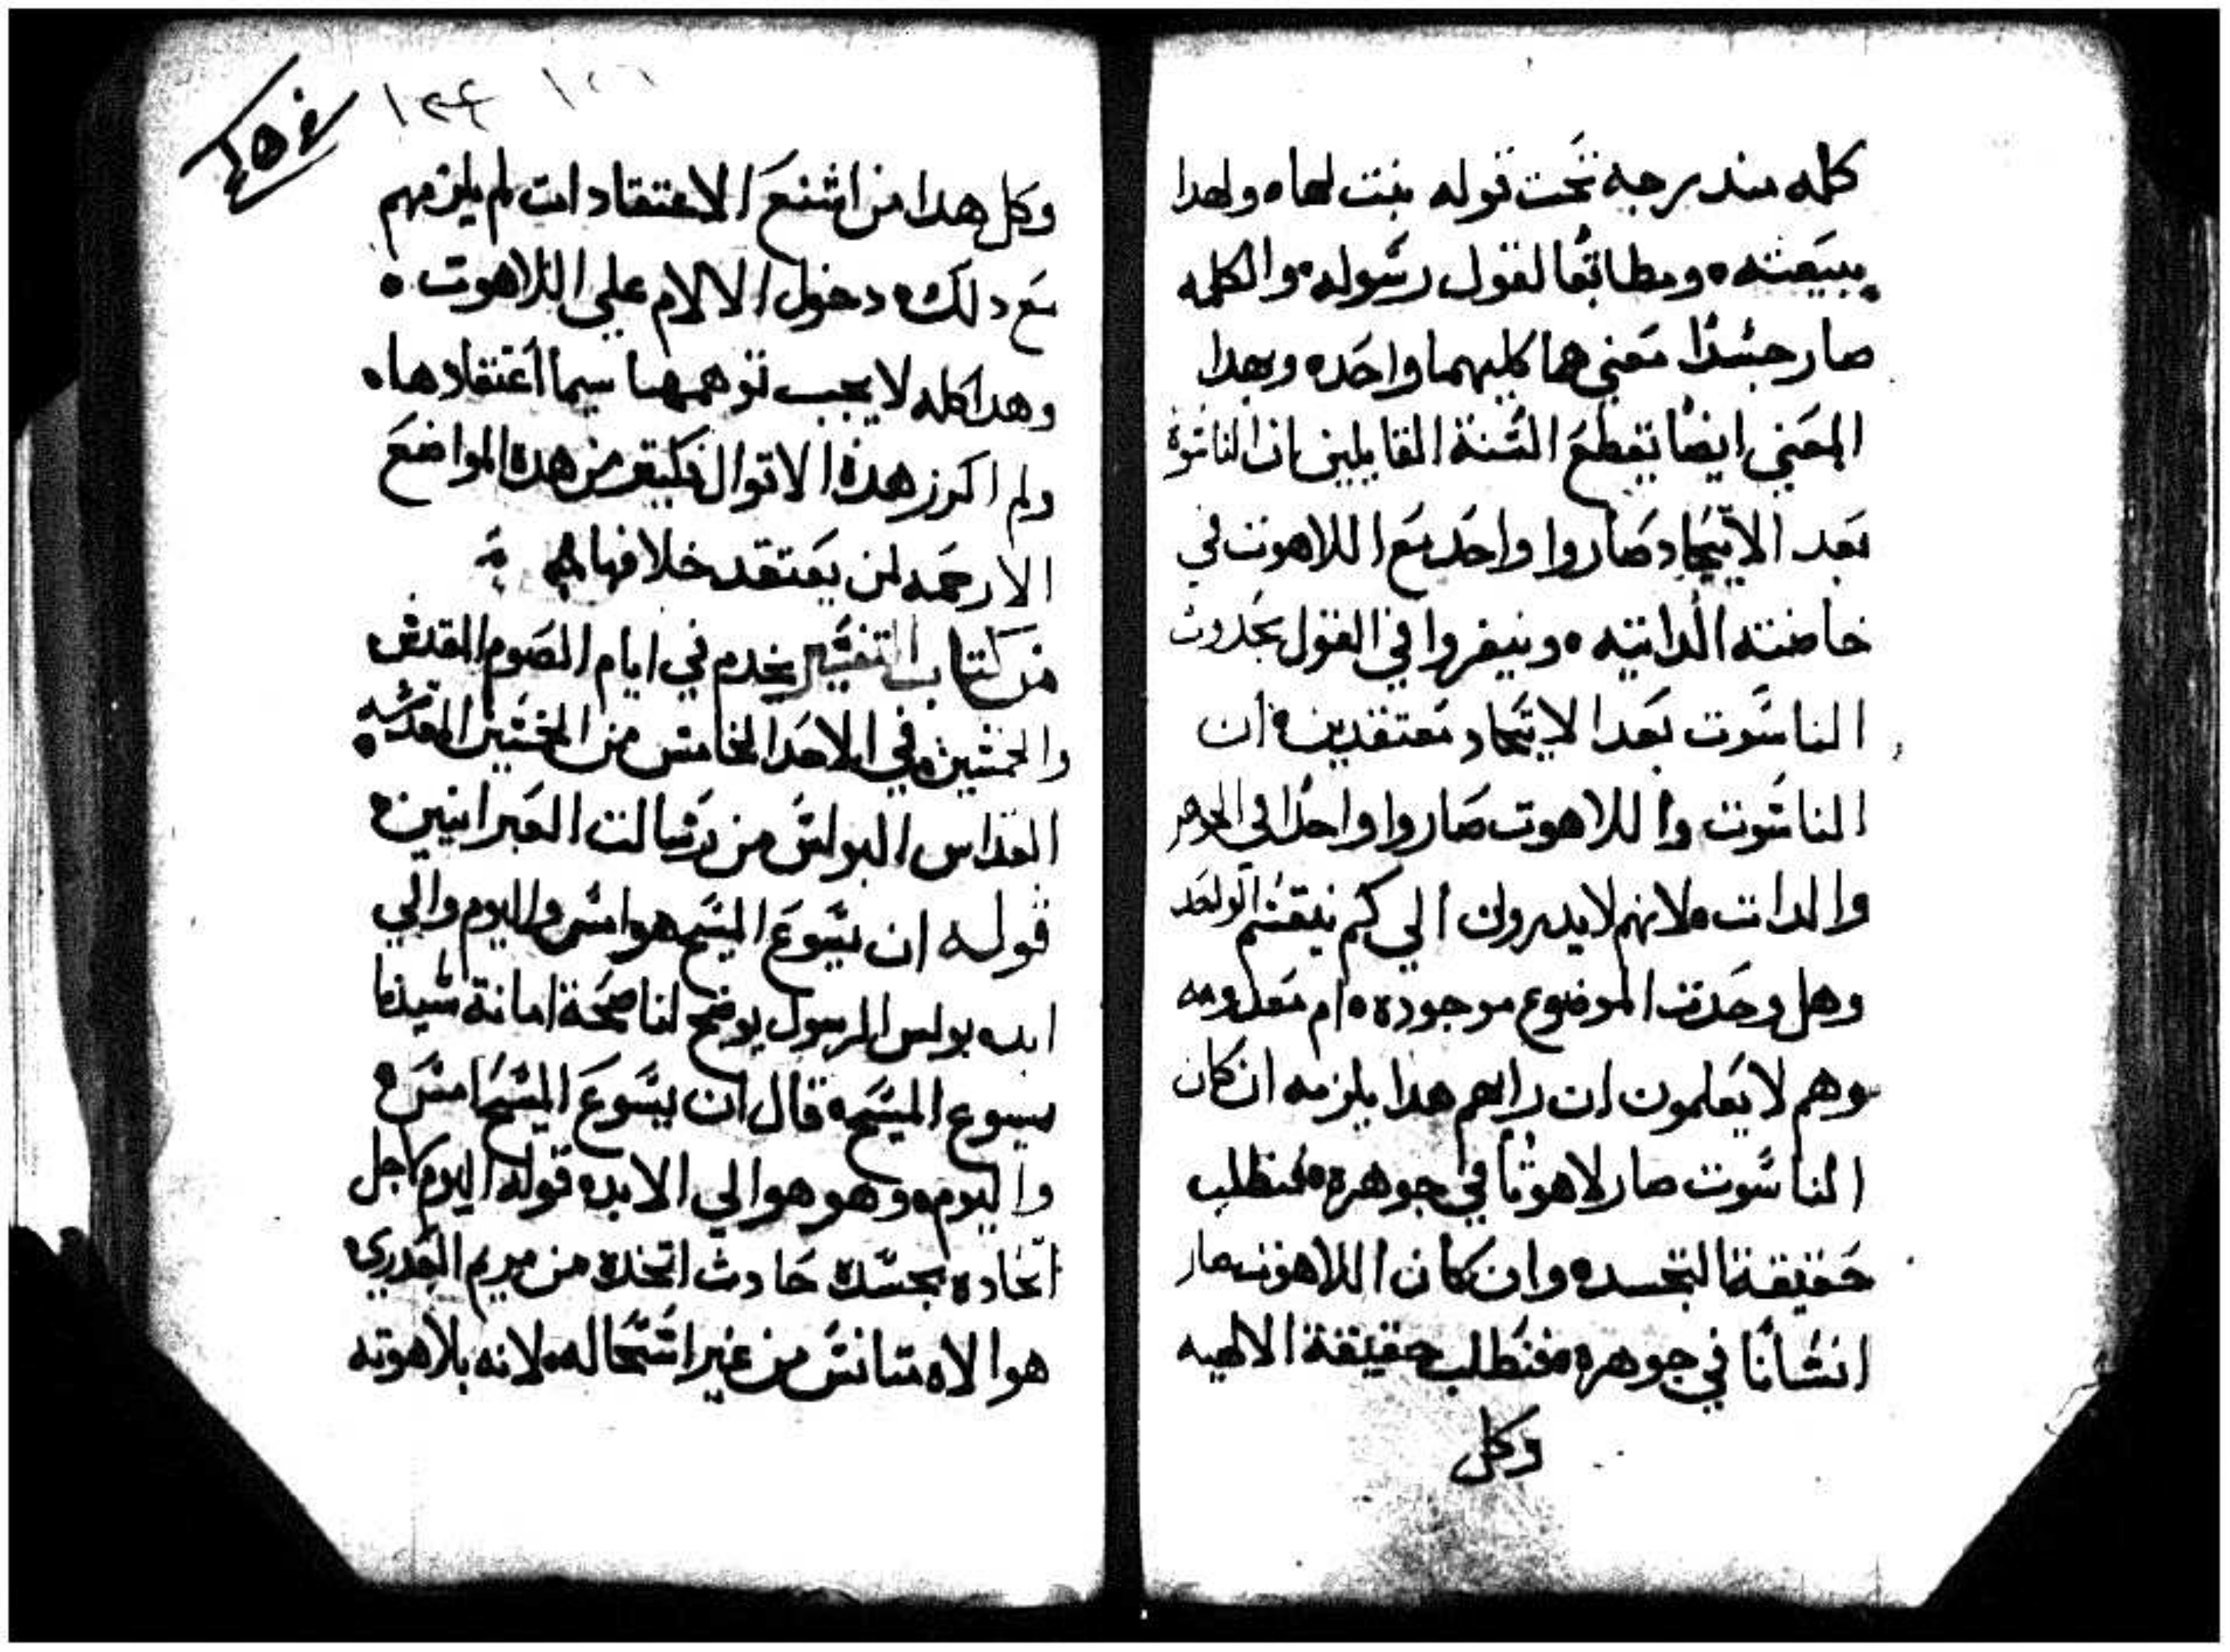 كلمه مندرجه تحت قوله بنت لها ه ولهدا
ببيعته ه ومطابقا لقول رسوله ه والكلمه
صار جسدًا معني هما كليهما واحده وبهدا
المعني ايضًا يقطع السنة القايلين ان الناسوت
بعد الاتيحاد صاروا واحد مع اللاهوت في
خاصته الداتيه ه وينفروا في القول بحدوث
الناسوت بعد الاتيحاد معتقدين ه ان
الناسوت واللاهوت صاروا واحدا في الجوهر
والدات ه لانهم لا يدرون الي كم ينقسم الواحد
وهل وحدت الموضوع موجوده ه ام معدومه
وهم لا يعلمون ان رايهم هدا يلزمه ان كان
الناسوت صار لاهوتًا في جوهره ه فتطلب
حقيقة التجسده وان كان اللاهوت صار
انسانًا في جوهره فتطلب حقيقة الالهيه
وكل
١٢٤
وكل هدا من اشنع الاعتقادات لم يلزمهم
مع دلك ه دخول الالام علي اللاهوت ه
وهدا كله لا يجب توهمها سيما اعتقادها ه
ولم اكرز هده الاقوال في كتير من هده المواضع
الا رحمه لمن يعتقد خلافها
من كتاب التفسير يخدم في ايام الصوم المقدس
والخمسين ه في الاحد الخامس من الخمسين المقدسه
القداس البولس من رسالت العبرانيين ه
قوله ان يسوع المسيح هو امس واليوم والي
ابد ه بولس الرسول يوضح لنا صحة امانة سيدنا
يسوع المسيح ه قال ان يسوع المسيح امس ه
واليوم ه وهو هو الي الابد ه قوله اليوم لاجل
اتحاده بجسده حادث اتخده من مريم العدري ه
هو الاه تانس من غير استحاله ه لانه بلاهوته